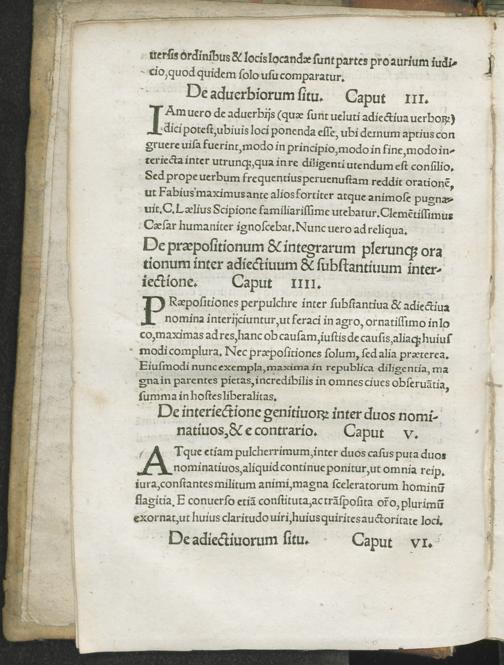 uersis ordinibus & locis locandæ sunt partes pro aurium iudi-
cio, quod quidem solo usu comparatur.
De aduerbiorum situ. Caput III.
IAm uero de aduerbijs (quæ sunt ueluti adiectiua uerboꝝ)
dici potest, ubiuis loci ponenda esse, ubi demum aptius con
gruere uisa fuerint, modo in principio, modo in fine, modo in-
teriecta inter utrunqꝫ, qua in re diligenti utendum est consilio.
Sed prope uerbum frequentius peruenustam reddit orationē,
ut Fabius maximus ante alios fortiter atque animose pugna-
uit. C. Lælius Scipione familiarissime utebatur. Clemētissimus
Cæsar humaniter ignoscebat. Nunc uero ad reliqua.
De præpositionum & integrarum plerunqꝫ ora
tionum inter adiectiuum & substantiuum inter-
iectione. Caput IIII.
PRæpositiones perpulchre inter substantiua & adiectiua
nomina interijciuntur, ut feraci in agro, ornatissimo in lo
co, maximas ad res, hanc ob causam, iustis de causis, aliaqꝫ huius
modi complura. Nec præpositiones solum, sed alia præterea.
Eiusmodi nunc exempla, maxima in republica diligentia, ma
gna in parentes pietas, incredibilis in omnes ciues obseruātia,
summa in hostes liberalitas.
De interiectione genitiuoꝝ inter duos nomi-
natiuos, & e contrario. Caput V.
ATque etiam pulcherrimum, inter duos casus puta duos
nominatiuos, aliquid continue ponitur, ut omnia reip.
iura, constantes militum animi, magna sceleratorum hominū
flagitia. E conuerso etiā constituta, ac trāsposita or̄o, plurimū
exornat, ut huius claritudo uiri, huius quirites auctoritate loci.
De adiectiuorum situ. Caput VI.